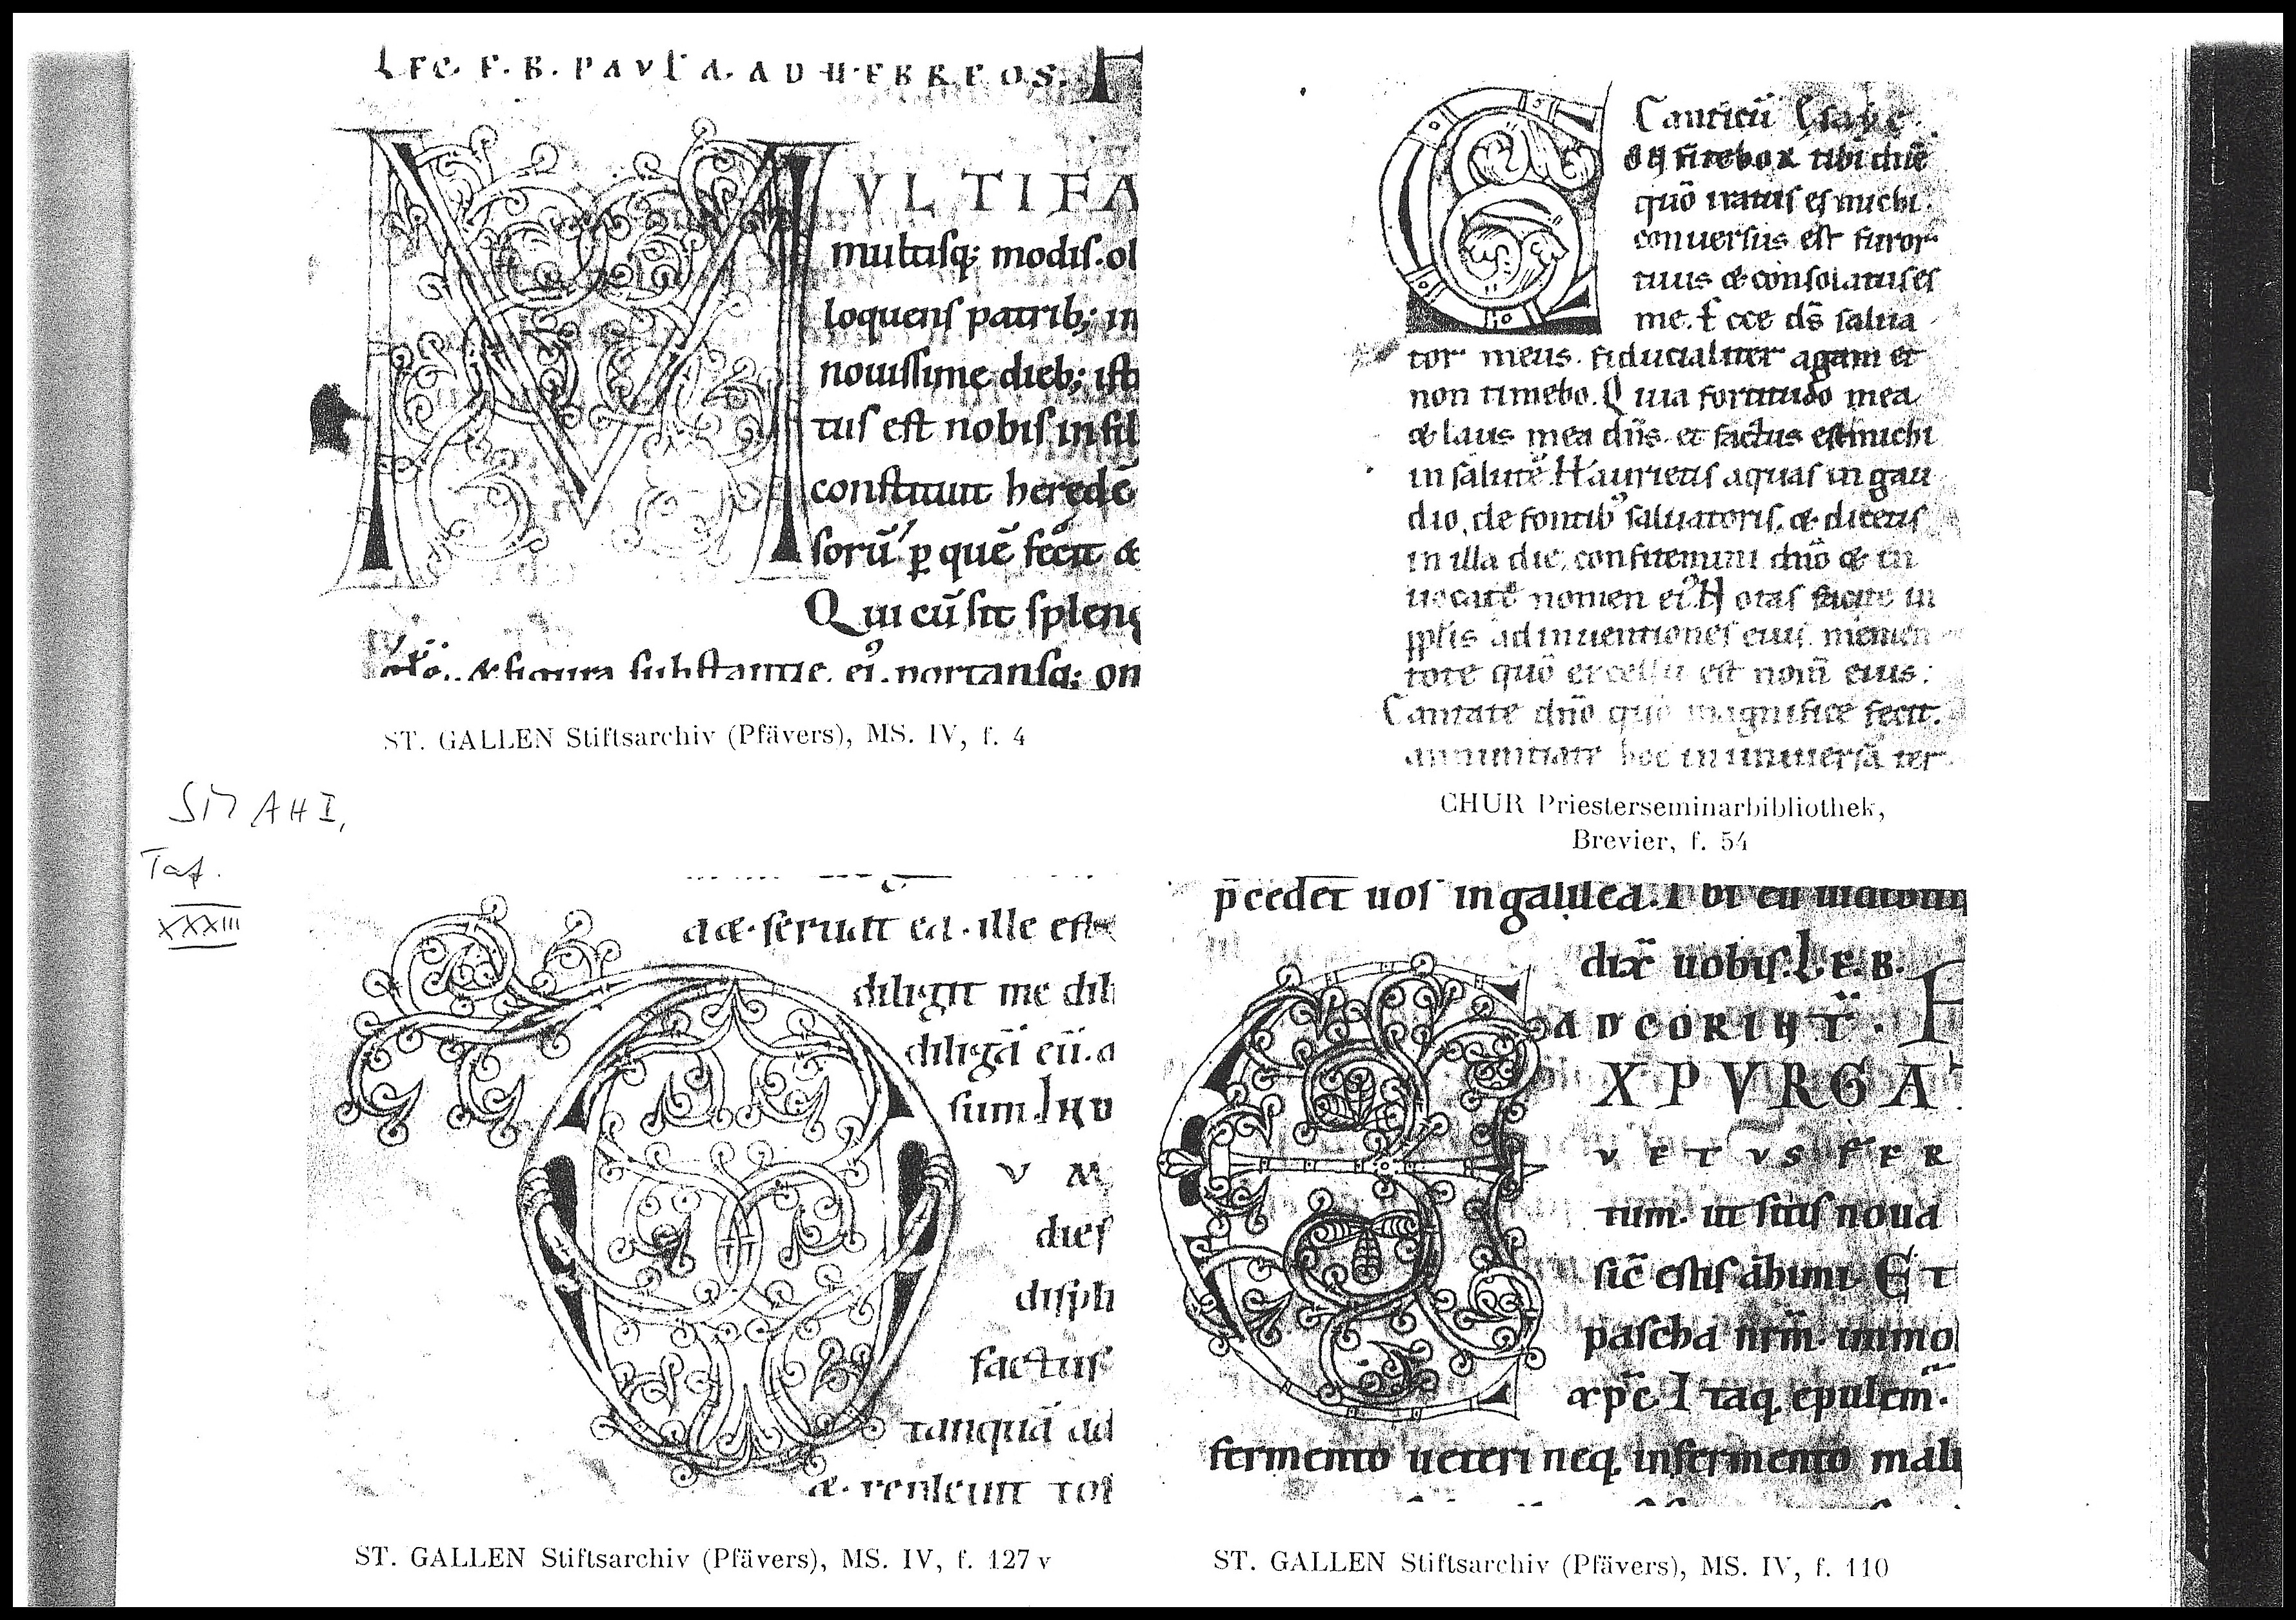 LEC. E. B. PAVLI. AD HEBREOS.
MVLTIFA
multisq; modis. ol
loquens patrib; in
nouissime dieb; istis
tus est nobis in fil
constituit heredē
sorū p quē fecit &
Qui cū sit spleng
& figura substantie. ei. portansq; om
ST. GALLEN Stiftsarchiv (Pfävers), MS. IV, f. 4
Canticū Esaye.
quō iratus es michi.
conuersus est furor
tuus & consolatus es
me. Ecce ds̄ salua
tor meus. fiducialiter agam et
non timebo. Quia fortitudo mea
& laus mea dn̄s. et factus est michi
in salutē. Haurietis aquas in gau
dio, de fontib' saluatoris. & dicetis
in illa die, confitemini dn̄o & in
uocate nomen ei'. Notas facite in
pp̄lis adinuentiones eius. memen
tote quō excelsū est nom̄ eius:
Cantate dn̄o quō magnifice fecit.
annuntiate hoc in uniuersā ter
CHUR Priesterseminarbibliothek,
Brevier, f. 54
SMAH I,
Taf.
XXXIII
d&. seruat ea. ille est
diligit me dili
diligā eū. &
sum. IN D
V M
dies
disph
factus
tanquā ad
&. repleuit tot
ST. GALLEN Stiftsarchiv (Pfävers), MS. IV, f. 127 v
p̄cedet uos in galilea. Ibi eū
dix̄ uobis. L. E. B.
AD CORINT.
XPVRGA
VETVS FER
tum. ut sitis noua
sic̄ estis azimi. ET
pascha nrm̄. immo
xpc̄. Itaq. epulem̄.
fermento ueteri neq. in fermento mali
ST. GALLEN Stiftsarchiv (Pfävers), MS. IV, f. 110